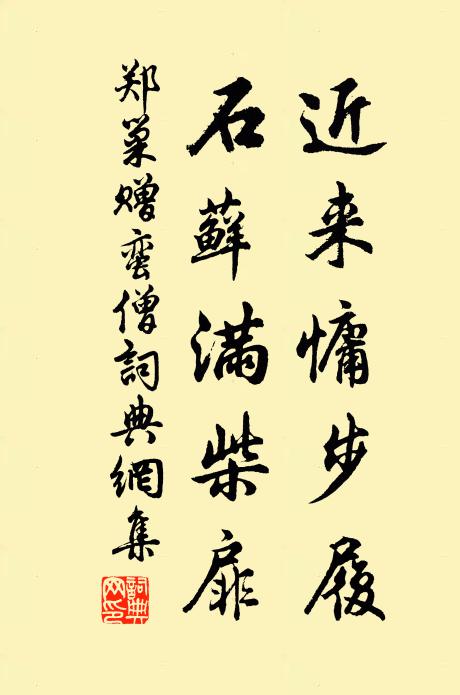 近来慵步履
石藓满柴扉
郑巢赠蛮僧詞典網集
詞典网印